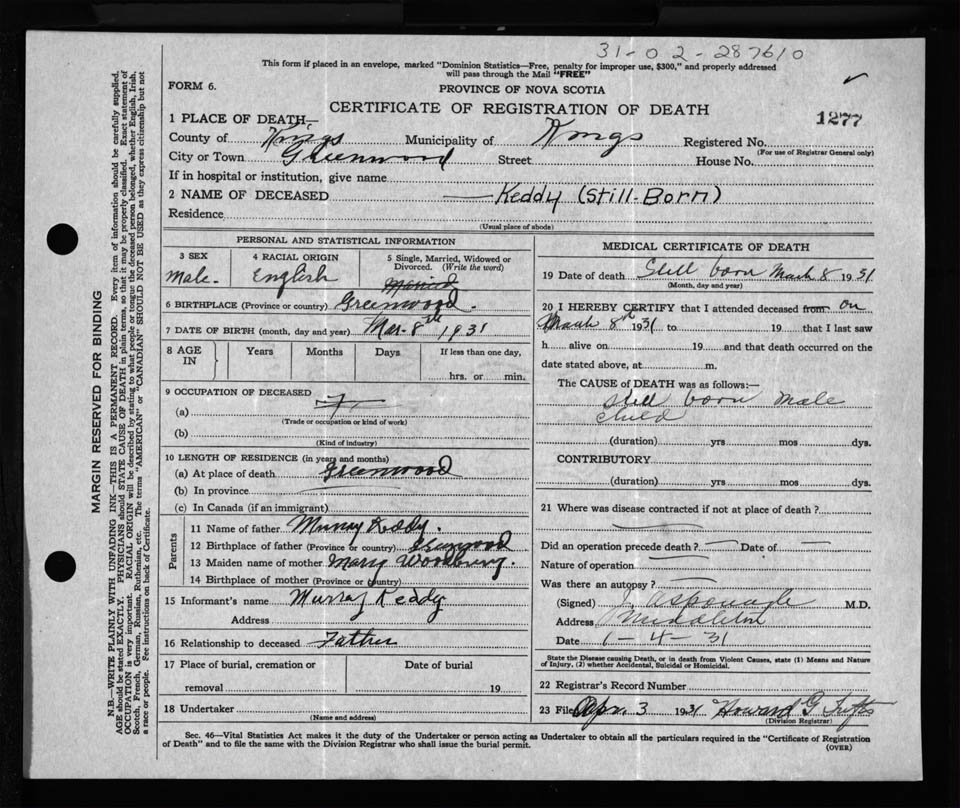 31-02-287610
This form if placed in an envelope, marked "Dominion Statistics—Free, penalty for improper use, $300," and properly addressed
will pass through the Mail "FREE"
FORM 6.
PROVINCE OF NOVA SCOTIA
CERTIFICATE OF REGISTRATION OF DEATH
1277
1 PLACE OF DEATH—
County of Kings Municipality of Kings Registered No.
(For use of Registrar General only)
City or Town Greenwood Street House No.
If in hospital or institution, give name
2 NAME OF DECEASED — Keddy (Still-Born)
Residence
(Usual place of abode)
PERSONAL AND STATISTICAL INFORMATION
3 SEX 4 RACIAL ORIGIN 5 Single, Married, Widowed or
Divorced. (Write the word)
Male. English
6 BIRTHPLACE (Province or country) Greenwood.
7 DATE OF BIRTH (month, day and year) Mar. 8th 1931
8 AGE IN Years Months Days If less than one day,
hrs. or min.
9 OCCUPATION OF DECEASED
(a)
(Trade or occupation or kind of work)
(b)
(Kind of industry)
10 LENGTH OF RESIDENCE (in years and months)
(a) At place of death Greenwood
(b) In province
(c) In Canada (if an immigrant)
Parents
11 Name of father Murray Keddy.
12 Birthplace of father (Province or country) Greenwood
13 Maiden name of mother Mary Woodbury.
14 Birthplace of mother (Province or country)
15 Informant's name Murray Keddy
Address
16 Relationship to deceased Father
17 Place of burial, cremation or Date of burial
removal 19
18 Undertaker
(Name and address)
MEDICAL CERTIFICATE OF DEATH
19 Date of death Still born March 8 1931
(Month, day and year)
20 I HEREBY CERTIFY that I attended deceased from on
March 8th 1931 to 19 that I last saw
h alive on 19 and that death occurred on the
date stated above, at m.
The CAUSE of DEATH was as follows:—
Still born male
child
(duration) yrs mos dys.
CONTRIBUTORY
(duration) yrs mos dys.
21 Where was disease contracted if not at place of death?
Did an operation precede death? — Date of —
Nature of operation
Was there an autopsy?
(Signed) M.D.
Address Middleton
Date 1-4-31
State the Disease causing Death, or in death from Violent Causes, state (1) Means and Nature
of Injury, (2) whether Accidental, Suicidal or Homicidal.
22 Registrar's Record Number
23 Filed Apr. 3 1931 Howard G Tufts
(Division Registrar)
Sec. 46—Vital Statistics Act makes it the duty of the Undertaker or person acting as Undertaker to obtain all the particulars required in the "Certificate of Registration
of Death" and to file the same with the Division Registrar who shall issue the burial permit.
(OVER)
MARGIN RESERVED FOR BINDING
N.B.—WRITE PLAINLY WITH UNFADING INK—THIS IS A PERMANENT RECORD. Every item of information should be carefully supplied.
AGE should be stated EXACTLY. PHYSICIANS should STATE CAUSE OF DEATH in plain terms, so that it may be properly classified. Exact statement of
OCCUPATION is very important. RACIAL ORIGIN will be described by stating to what people or tongue the deceased person belonged, whether English, Irish,
Scotch, French, German, Russian, Ruthenian, etc. The terms "AMERICAN" or "CANADIAN" SHOULD NOT BE USED as they express citizenship but not
a race or people. Fee instructions on back of Certificate.